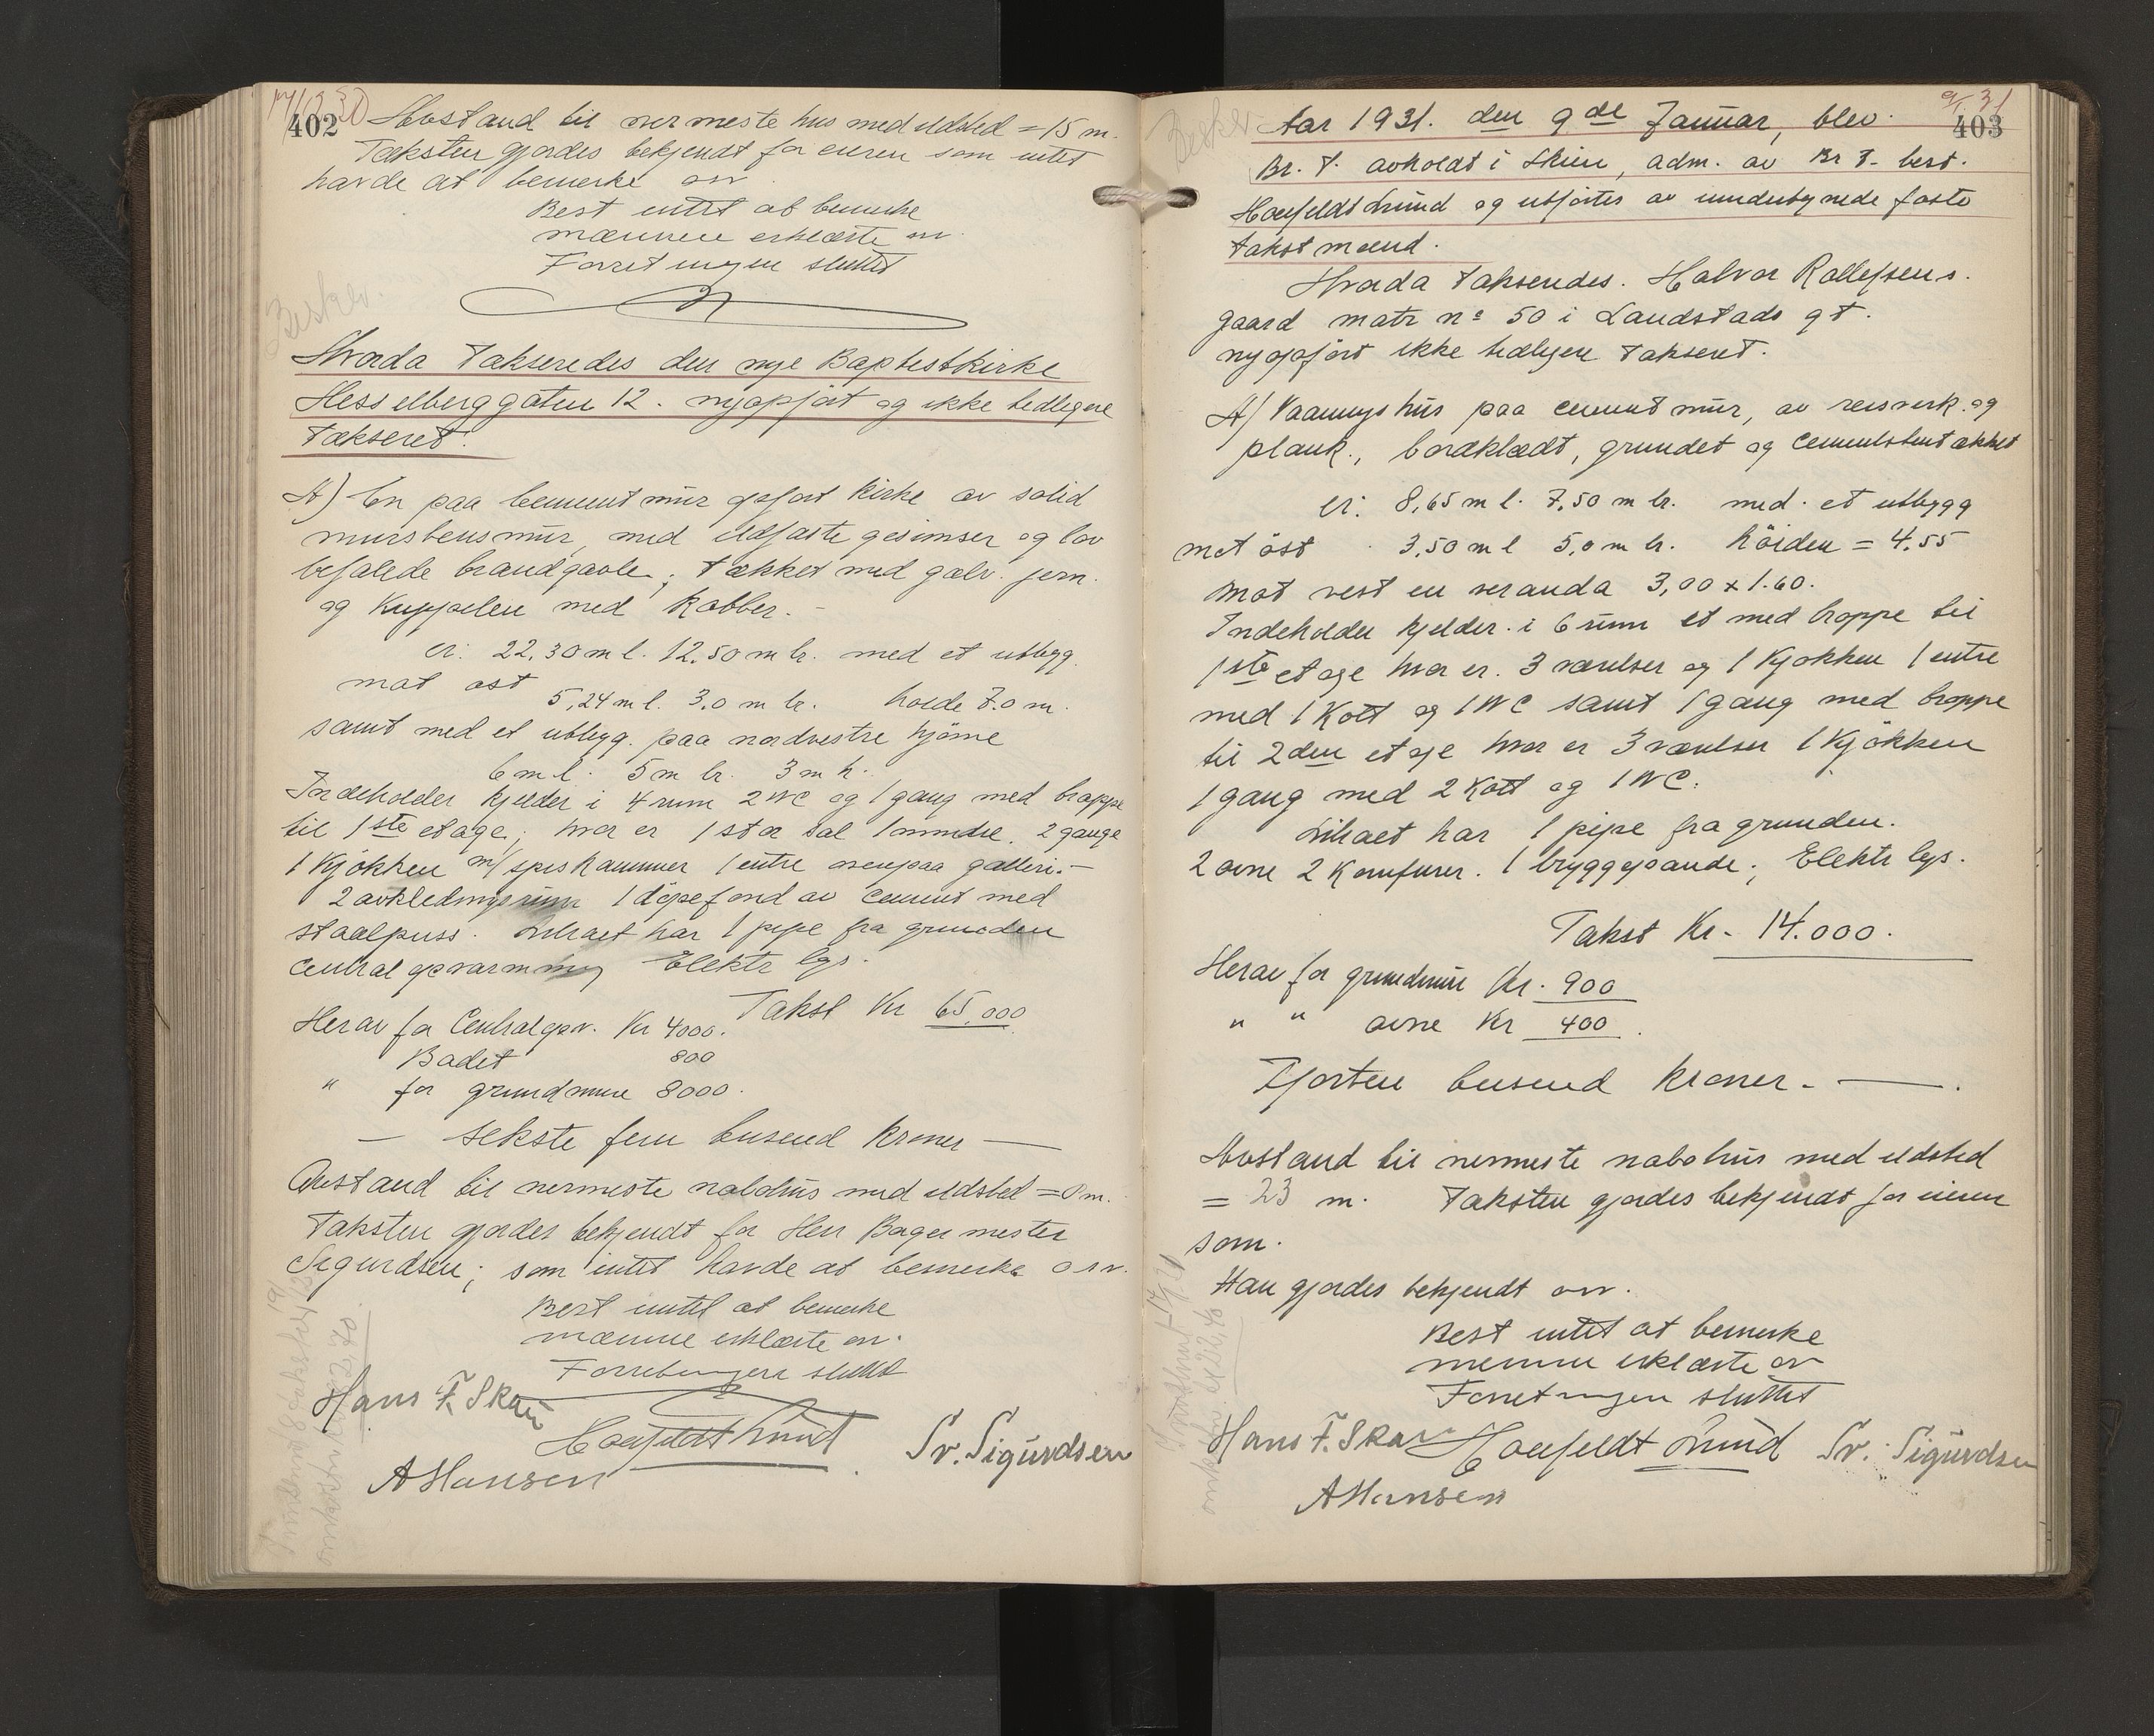 402
Avstand til nermeste hus med ildsted = 15 m.
Taksten gjordes bekjendt for eieren som intet
havde at bemerke ovr.
Best intet at bemerke
mænnene erklærte ovr.
Forretningen sluttet
Beskr.
Hvorda takseredes den nye Baptestkirke
Hesselberggaten 12. nyopført og ikke tedligere
takseret.
A) En paa cement mur opført kirke av solid
murstens mur, med ildfaste gesimser og lov
befalede brandgavle; tækket med galv. jern.
og Kuppelen med Kobber. -
er: 22,30 m l. 12,50 m br. med et utbygg.
mot ost 5,24 m l. 3.0 m br. hoide 7.0 m.
samt med et utbygg. paa nordvestre hjörne
6 m l. 5 m br. 3 m h.
Indeholder kjelder i 4 rum 2 WC og 1 gang med troppe
til 1ste etage; hvor er 1 stor sal 1 mindre. 2 gange
1 Kjökken m/ spiskammer 1 entre ovenpaa galleri. -
2 avkledningsrum 1 döpefond av cement med
staalpuss. Lokaet har 1 pipe fra grunden
Central opvarmning Elektr lys.
Takst Kr 65,000
Herav for Centralopv. Kr 4000.
Badet 800
" for grundmure 8000.
- sekste fem tusend Kroner -
Avstand til nermeste nabohus med ildsted = 0 m.
Taksten gjordes bekjendt for Herr Bager mester
Sigurdsen; som intet havde at bemerke ovr.
Best intet at bemerke
mænnene erklærte ovr.
Forretningen sluttet
Hans F. Skau
Hoefeldt Lund
Sv. Sigurdsen
A Hansen
9/1 31
403
Beskr.
Aar 1931. den 9de Januar, blev.
Br. T. avholdt i Skien, adm. av Br T. best.
Hoefeldt Lund og utförtes av undertegnede faste
takstmænd.
Hvorda takseredes. Halvor Rollefsens.
gaard matr no 50 i Landstads gt.
nyopfört ikke tedligere takseret.
A) Vaanings hus paa cement mur, av reisverk og
plank., bordklædt, grundet og cementstentækket
er: 8,65 m l. 7,50 m br. med et utbygg
mot öst 3,50 m l 5,0 m br. höiden = 4.55
mot vest en veranda 3,00 x 1.60.
Indeholder kjelder i 6 rum et med troppe til
1ste etage hvor er. 3 værelser og 1 Kjökken 1 entre
med 1 Kott og 1 WC samt 1 gang med troppe
til 2den etage hvor er 3 værelser 1 Kjökken
1 gang med 2 Kott og 1 WC.
Lokaet har 1 pipe fra grunden.
2 ovne 2 Komfurer. 1 bryggepande; Elektr lys.
Takst Kr - 14.000.
Herav for grundmur Kr. 900
" " ovne Kr 400.
Fjorten tusend Kroner. - .
Avstand til nermeste nabohus med ildsted
= 23 m. Taksten gjordes bekjendt for eieren
som.
Han gjordes bekjendt ovr.
Best intet at bemerke
mennene erklærte ovr
Forretningen sluttet
Hans F. Skau
Hoefeldt Lund
Sv. Sigurdsen
A Hansen